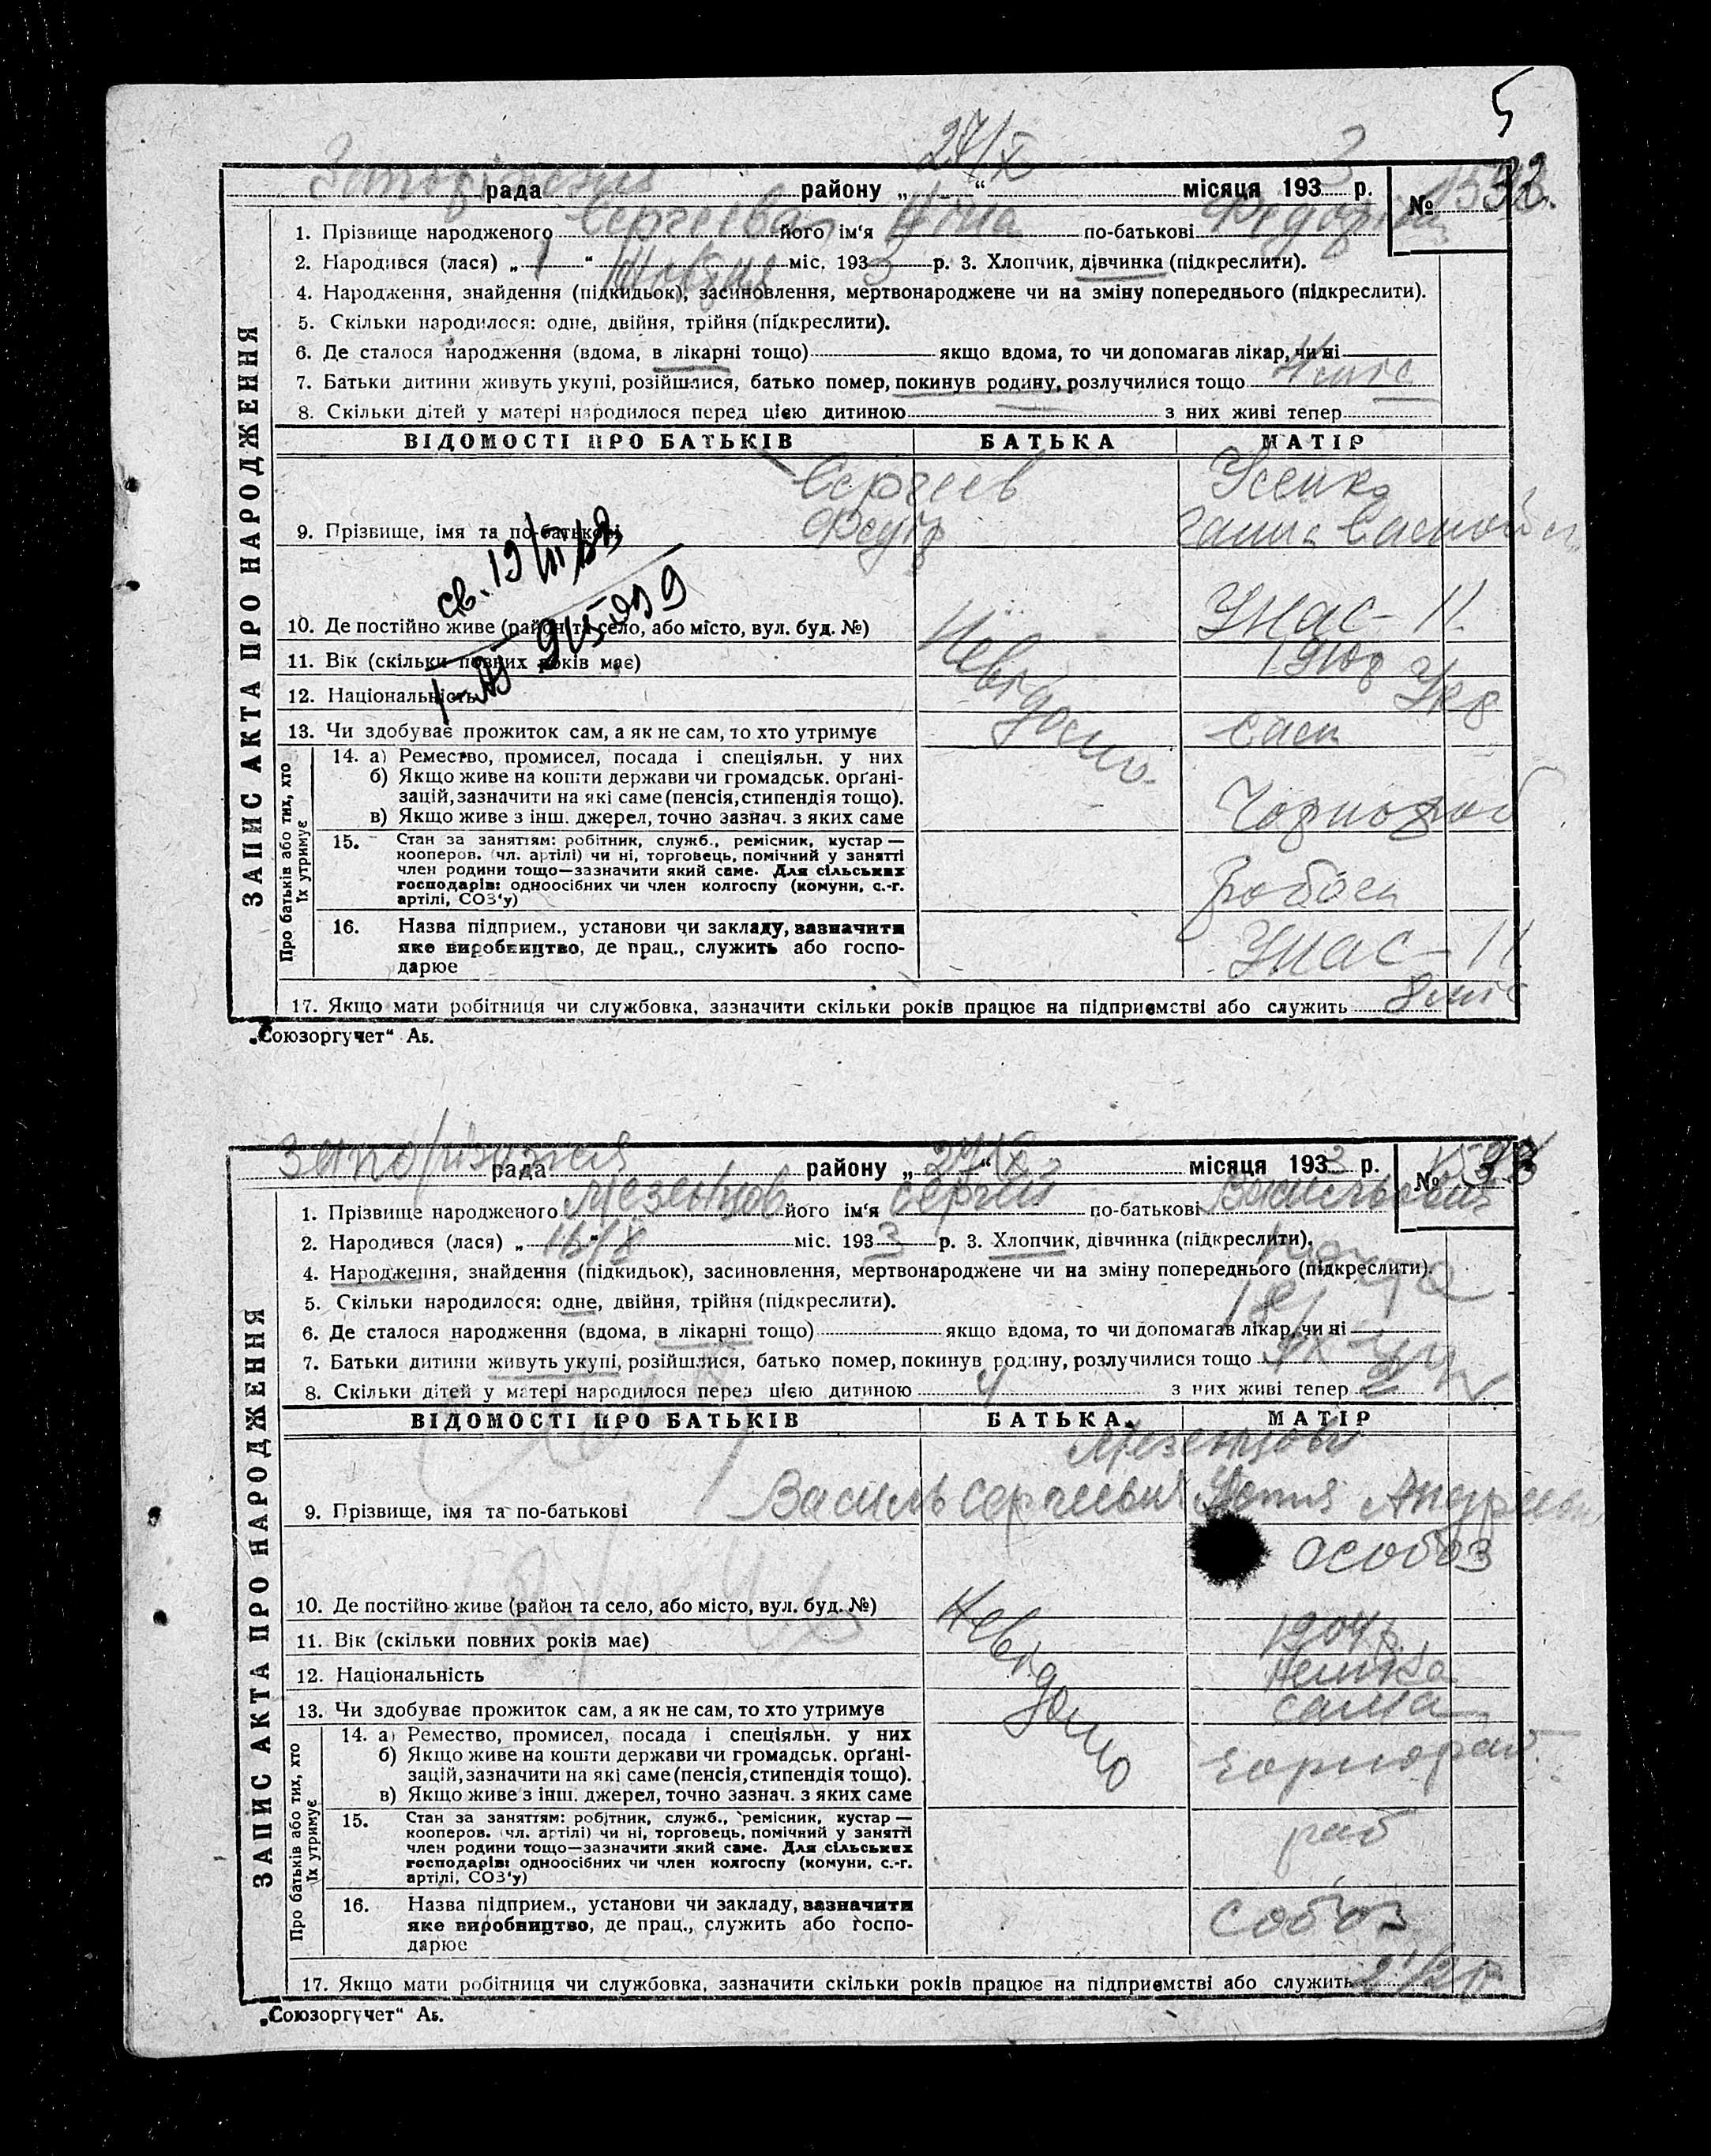 5
27/X
Запоріжжя рада району „ “ місяця 1933 р. № 32
1. Прізвище народженого Сергеева його ім‘я Ніна по-батькові
2. Народився (лася) „ 1 “ міс. 1933 р. 3. Хлопчик, дівчинка (підкреслити).
4. Народження, знайдення (підкидьок), засиновлення, мертвонароджене чи на зміну попереднього (підкреслити).
5. Скільки народилося: одне, двійня, трійня (підкреслити).
6. Де сталося народження (вдома, в лікарні тощо) якщо вдома, то чи допомагав лікар, чи ні
7. Батьки дитини живуть укупі, розійшлися, батько помер, покинув родину, розлучилися тощо
8. Скільки дітей у матері народилося перед цією дитиною з них живі тепер
ЗАПИС АКТА ПРО НАРОДЖЕННЯ
ВІДОМОСТІ ПРО БАТЬКІВ БАТЬКА МАТІР
Сергеев Усенко
9. Прізвище, імя та по-батькові Федір
св. 19
10. Де постійно живе (район та село, або місто, вул. буд. №) Невідомо
11. Вік (скільки повних років має)
12. Національність Укр
13. Чи здобуває прожиток сам, а як не сам, то хто утримує сама
Про батьків або тих, хто їх утримує
14. а) Ремество, промисел, посада і спеціяльн. у них
б) Якщо живе на кошти держави чи громадськ. орґані-
зацій, зазначити на які саме (пенсія, стипендія тощо).
в) Якщо живе з інш. джерел, точно зазнач. з яких саме Чорнораб
15. Стан за заняттям: робітник, служб., ремісник, кустар —
кооперов. (чл. артілі) чи ні, торговець, помічний у занятті
член родини тощо—зазначити який саме. Для сільських
господарів: одноосібних чи член колгоспу (комуни, с.-г.
артілі, СОЗ‘у)
16. Назва підприєм., установи чи закладу, зазначити
яке виробництво, де прац., служить або госпо-
дарює
17. Якщо мати робітниця чи службовка, зазначити скільки років працює на підприємстві або служить 8 міс
„Союзоргучет“ Аб.
Запоріжжя рада району „ 27/X “ місяця 1933 р. № 33
1. Прізвище народженого Мезенцов його ім‘я Сергій по-батькові Васильович
2. Народився (лася) „ 16/IX “ міс. 1933 р. 3. Хлопчик, дівчинка (підкреслити).
4. Народження, знайдення (підкидьок), засиновлення, мертвонароджене чи на зміну попереднього (підкреслити).
5. Скільки народилося: одне, двійня, трійня (підкреслити).
6. Де сталося народження (вдома, в лікарні тощо) якщо вдома, то чи допомагав лікар, чи ні
7. Батьки дитини живуть укупі, розійшлися, батько помер, покинув родину, розлучилися тощо
8. Скільки дітей у матері народилося перед цією дитиною 4 з них живі тепер 2
ЗАПИС АКТА ПРО НАРОДЖЕННЯ
ВІДОМОСТІ ПРО БАТЬКІВ БАТЬКА МАТІР
Мезенцови
9. Прізвище, імя та по-батькові Василь Сергеевич
10. Де постійно живе (район та село, або місто, вул. буд. №) Невідомо
11. Вік (скільки повних років має) 1904 р.
12. Національність Немка
13. Чи здобуває прожиток сам, а як не сам, то хто утримує сама
Про батьків або тих, хто їх утримує
14. а) Ремество, промисел, посада і спеціяльн. у них
б) Якщо живе на кошти держави чи громадськ. орґані-
зацій, зазначити на які саме (пенсія, стипендія тощо).
в) Якщо живе з інш. джерел, точно зазнач. з яких саме чорнораб.
15. Стан за заняттям: робітник, служб., ремісник, кустар —
кооперов. (чл. артілі) чи ні, торговець, помічний у занятті
член родини тощо—зазначити який саме. Для сільських
господарів: одноосібних чи член колгоспу (комуни, с.-г.
артілі, СОЗ‘у) раб
16. Назва підприєм., установи чи закладу, зазначити
яке виробництво, де прац., служить або госпо-
дарює
17. Якщо мати робітниця чи службовка, зазначити скільки років працює на підприємстві або служить 2 1/2 р
„Союзоргучет“ Аб.